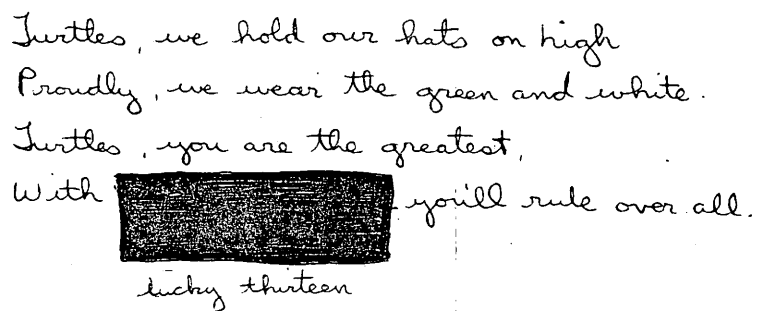 Turtles, we hold our hats on high
Proudly, we wear the green and white.
Turtles, you are the greatest,
With you'll rule over all.
lucky thirteen